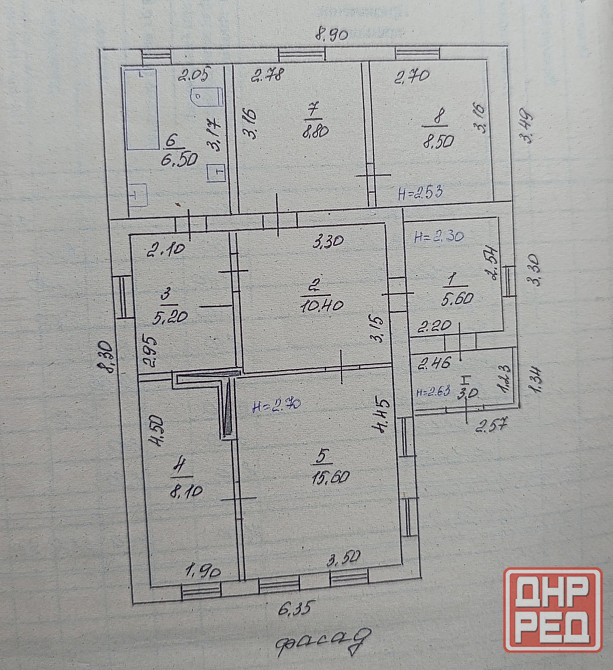 8.90
2.05
2.78
2.70
6
6.50
3,17
3,16
7
8.80
8
8.50
3,16
3,49
H=2.53
2.10
3,30
H=2.30
2.54
3
5.20
2
10.40
1
5.60
3,30
8,30
2.95
3,15
2.20
2.46
H=2.63
I
3,0
1.23
1,34
H=2.70
4.45
2.57
4,50
4
8.10
5
15.60
1,90
3.50
6,35
фасад
ДНР
РЕД